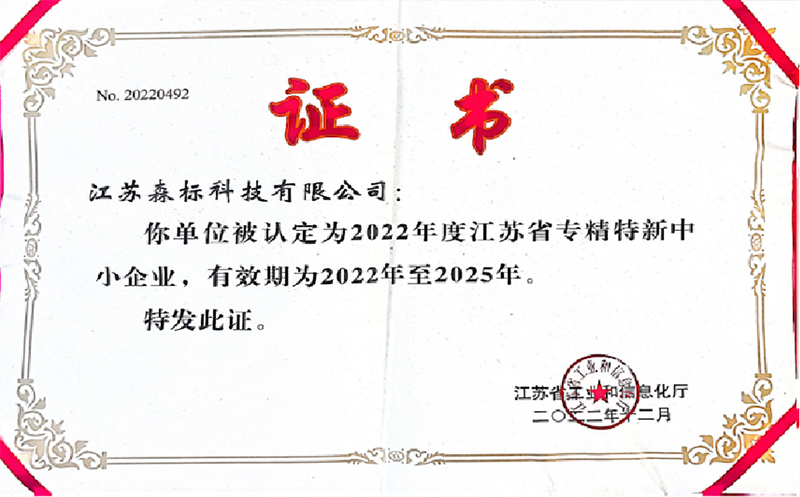 No. 20220492
证 书
江苏森标科技有限公司：
你单位被认定为2022年度江苏省专精特新中
小企业，有效期为2022年至2025年。
特发此证。
江苏省工业和信息化厅
江苏省工业和信息化厅
二〇二二年十二月